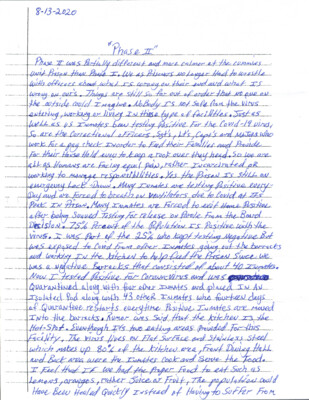 8-13-2020
"Phase II"
Phase II was Partially different and more calmer at the commies
and Prison than Phase I. We as Prisoners no longer had to wrestle
with officers about what is wrong on their part and what is
wrong on ours. Things are still so far out of order that no one on
the outside could Imagine. Nobody is not safe from the virus
entering, working or living In these type of facilities. Just as
well as us Inmates been testing Positive for the Covid-19 virus,
So are the Correctional officers, Sgt's, Lt's, Capt's and majors who
work for a pay check Inorder to Feed their Families and Provide
for their House Hold even to keep a roof over they head. So we are
all as Humans are facing equal pain, rather Incarcerated or
working to manage responsibilities. Yes the Prison Is still on
emergency Lock Down. Many Inmates are testing Positive every
Day and are forced to breath on Ventilators due to Covid at its
Peak In Prison. Many Inmates are Denied to exit Home Passes
after being Swabed Testing for release on Parole From the Board
Decision. 75% Percent of the Population Is Positive with the
virus. I was Part of the 25% who kept testing Negative But
was exposed to Covid from other Inmates going out the barracks
and working In the kitchen to help feed the Prison Since we
was a negative Barracks that consisted of about 40 Inmates.
Now I tested Positive for Corona Virus and was
Quarantined along with four other Inmates and placed In An
Isolated Pod along with 43 other Inmates who fourteen days
of Quarantee restarts everytime Positive Inmates are moved
Into the barracks. Rumor was Said that the kitchen Is the
Hot-Spot. Eventhough Its two eating areas provided for this
Facility. The Virus lives on Flat Surface and Stainless Steel
which makes up 80% of the kitchen area, Front Dining Hall
and Back area were the Inmates Cook and Serve the Food.
I Feel that If we had the Proper Food to eat Such as
Lemons, oranges, rather Juice or Fruit. The population could
Have Been Healed Quickly Instead of Having to Suffer From